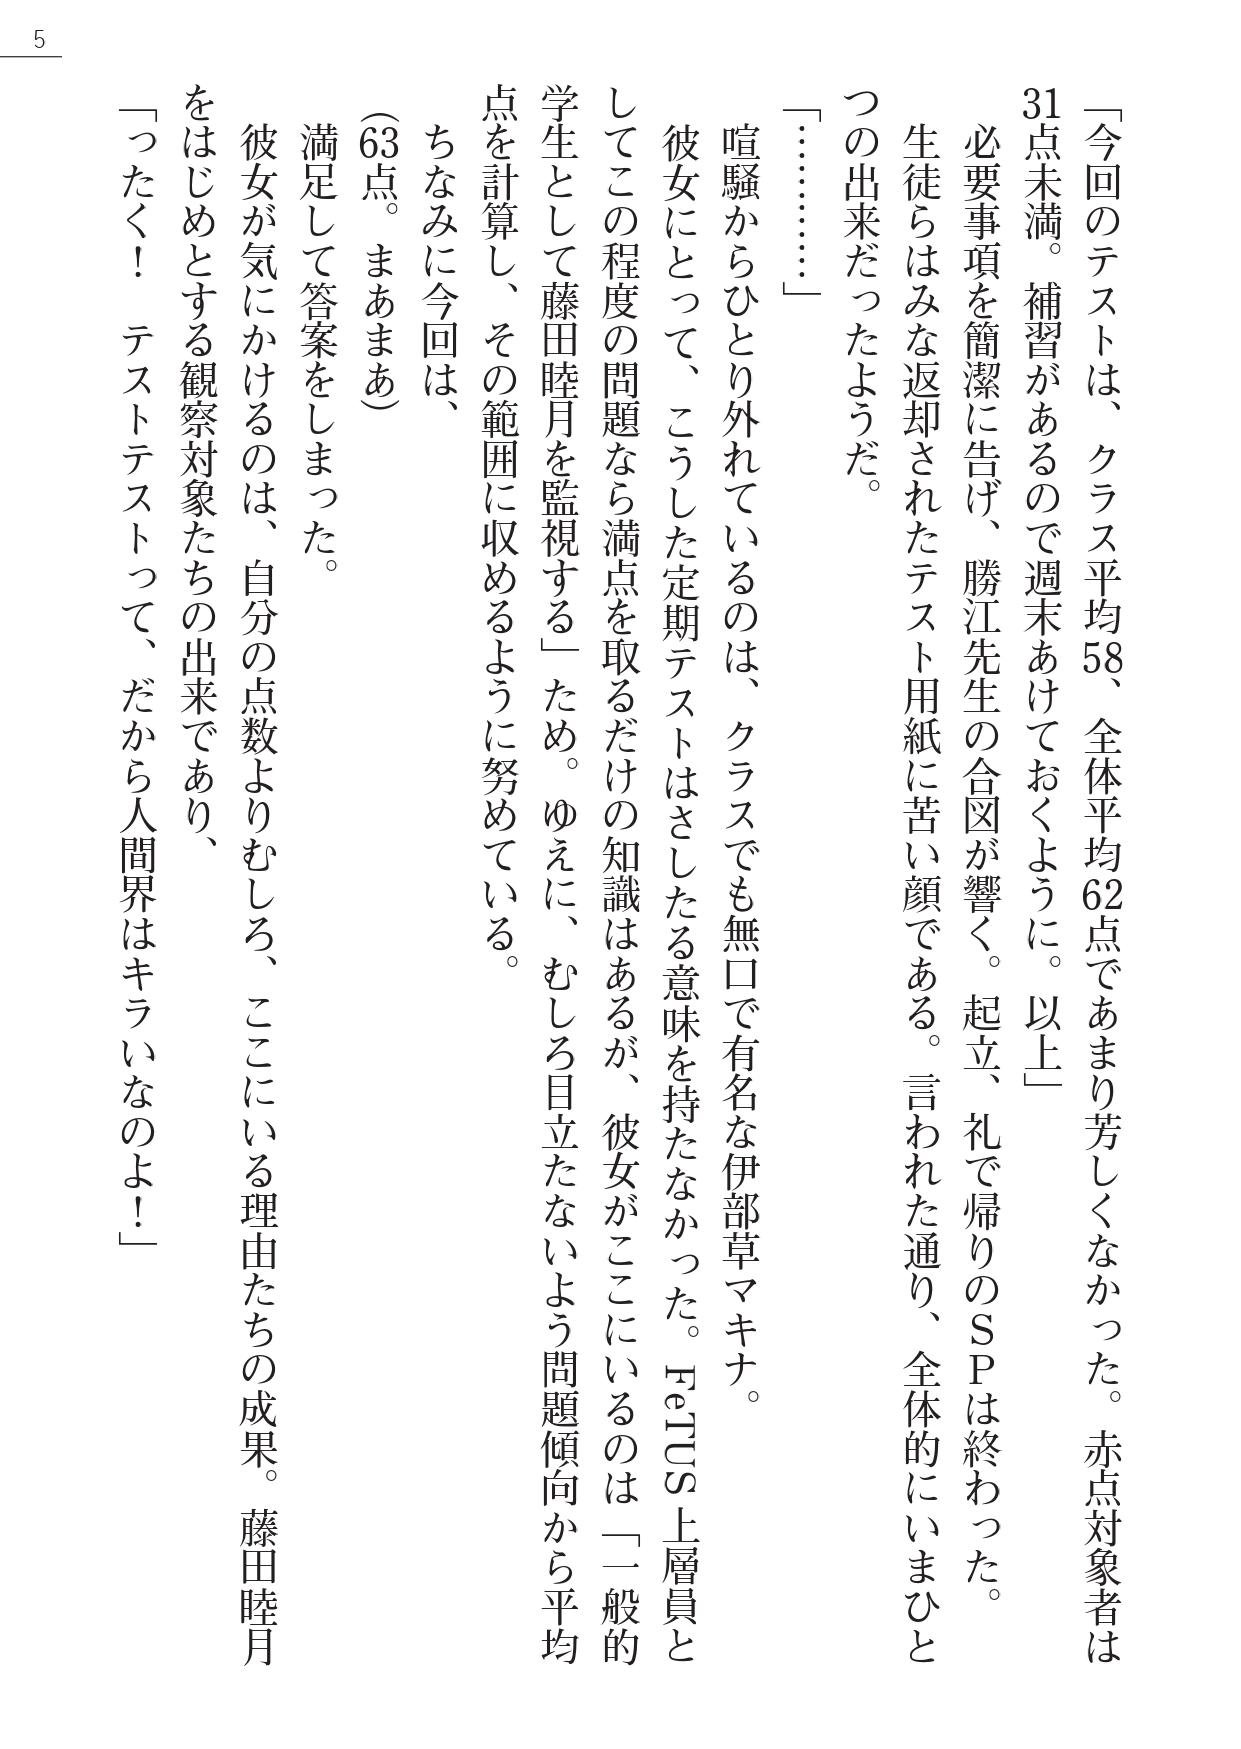 5
「今回のテストは、クラス平均58、全体平均62点であまり芳しくなかった。赤点対象者は
31点未満。補習があるので週末あけておくように。以上」
　必要事項を簡潔に告げ、勝江先生の合図が響く。起立、礼で帰りのＳＰは終わった。
　生徒らはみな返却されたテスト用紙に苦い顔である。言われた通り、全体的にいまひと
つの出来だったようだ。
「…………」
　喧騒からひとり外れているのは、クラスでも無口で有名な伊部草マキナ。
　彼女にとって、こうした定期テストはさしたる意味を持たなかった。FeTUS上層員と
してこの程度の問題なら満点を取るだけの知識はあるが、彼女がここにいるのは「一般的
学生として藤田睦月を監視する」ため。ゆえに、むしろ目立たないよう問題傾向から平均
点を計算し、その範囲に収めるように努めている。
　ちなみに今回は、
（63点。まあまあ）
　満足して答案をしまった。
　彼女が気にかけるのは、自分の点数よりむしろ、ここにいる理由たちの成果。藤田睦月
をはじめとする観察対象たちの出来であり、
「ったく！　テストテストって、だから人間界はキラいなのよ！」